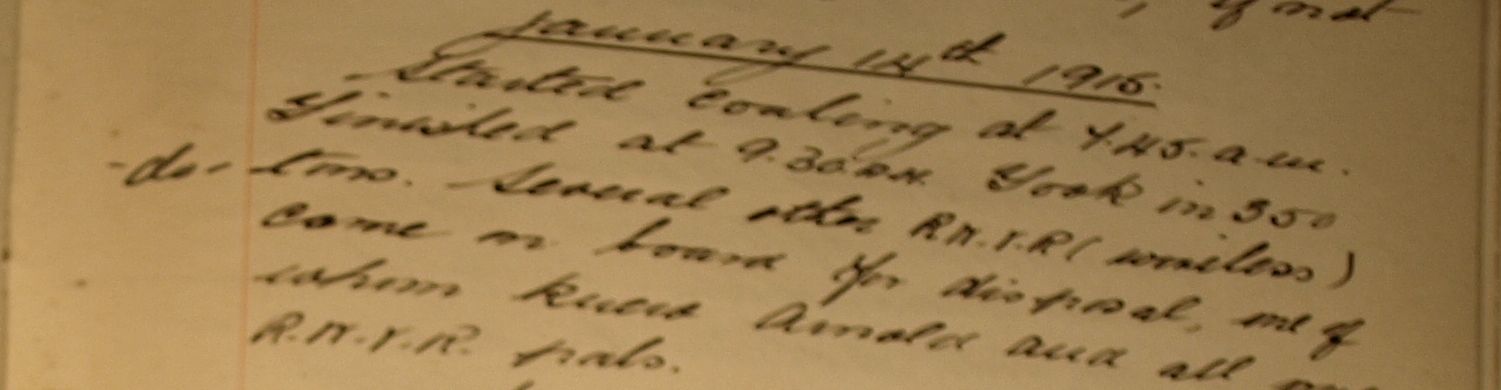 , if not
January 14th 1915.
Started coaling at 7.45. a.m.
Finished at 9.30. a.m. Took in 350
-do- tons. Several other R.N.V.R (wireless)
come on board for disposal, one of
whom knew Arnold and all
R.N.V.R. pals.